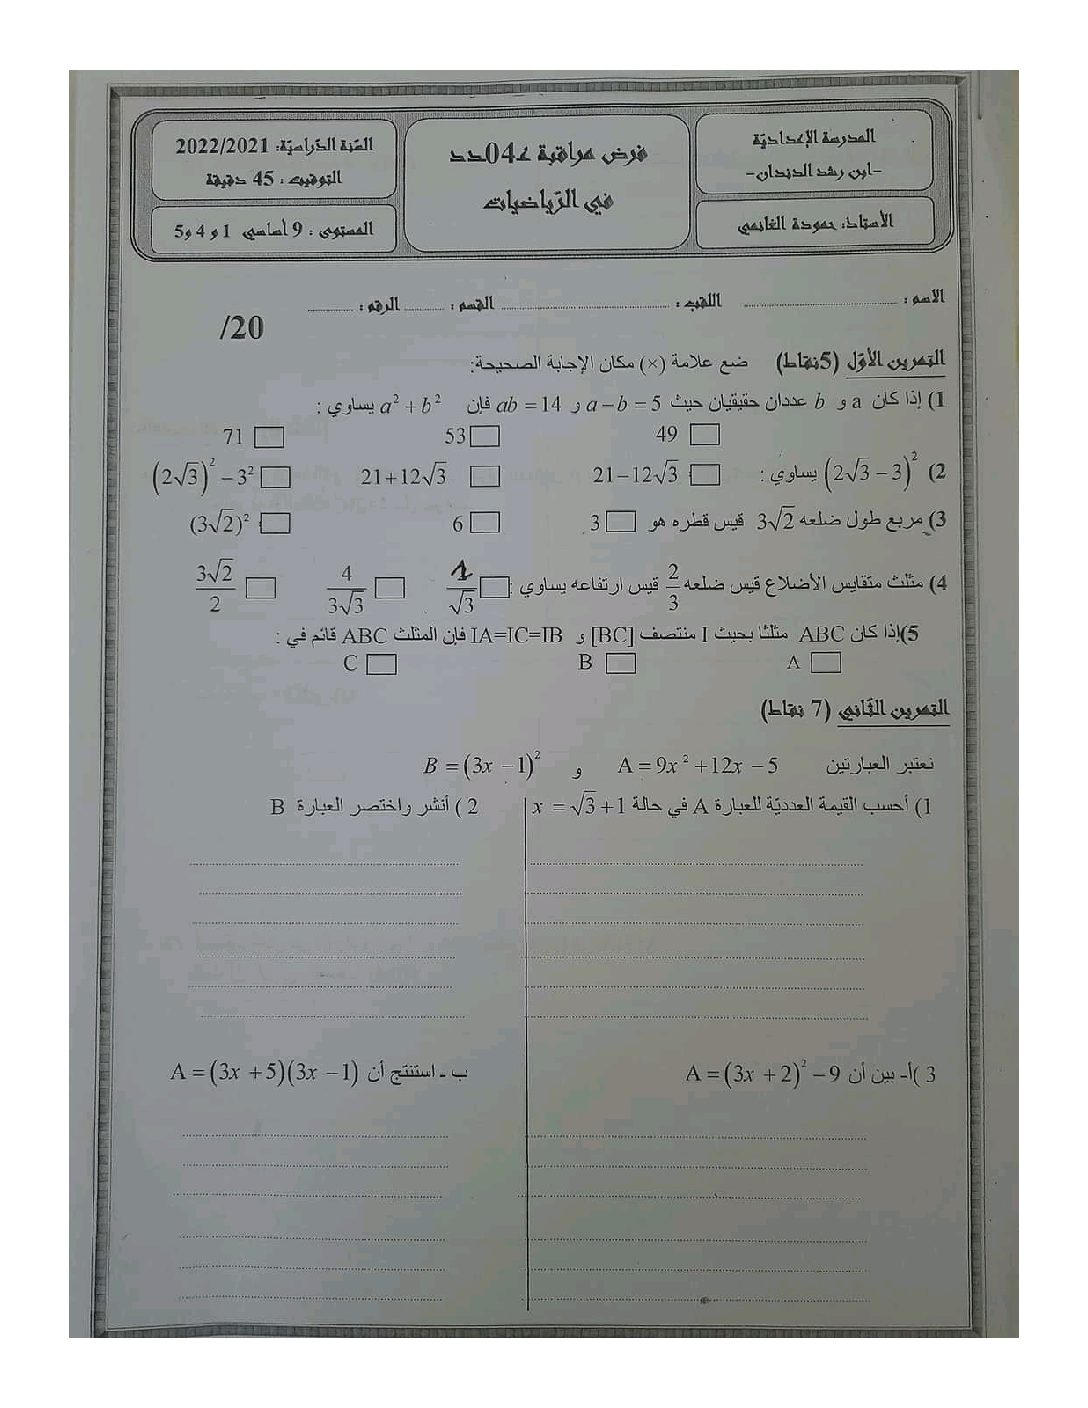 المدرسة الإعداديّة
-ابن رشد الدندان-
الأستاذ: حمودة الغانمي
فرض مراقبة عـ04ـدد
في الرّياضيات
السّنة الدّراسيّة: 2022/2021
التوقيت : 45 دقيقة
المستوى : 9 أساسي 1 و 4 و5
الاسم : .......... اللقب : .......... القسم : .......... الرقم : ..........
/20
التمرين الأوّل (5نقاط) ضع علامة (×) مكان الإجابة الصحيحة:
1) إذا كان a و b عددان حقيقيان حيث a−b = 5 و ab = 14 فإن a² + b² يساوي :
49 □ 53 □ 71 □
2) (2√3 − 3)² يساوي : □ 21−12√3 □ 21+12√3 □ (2√3)² − 3²
3) مربع طول ضلعه 3√2 قيس قطره هو □ 3 □ 6 □ (3√2)²
4) مثلث متقايس الأضلاع قيس ضلعه 2/3 قيس ارتفاعه يساوي : □ 1/√3 □ 4/3√3 □ 3√2/2
5)إذا كان ABC مثلثا بحيث I منتصف [BC] و IA=IC=IB فإن المثلث ABC قائم في :
A □ B □ C □
التمرين الثّاني (7 نقاط)
نعتبر العبارتين A = 9x² +12x − 5 و B = (3x − 1)²
1) أحسب القيمة العدديّة للعبارة A في حالة x = √3 +1
2 ) أنشر واختصر العبارة B
3 )أ- بين أن A = (3x + 2)² − 9
ب ـ استنتج أن A = (3x + 5)(3x − 1)